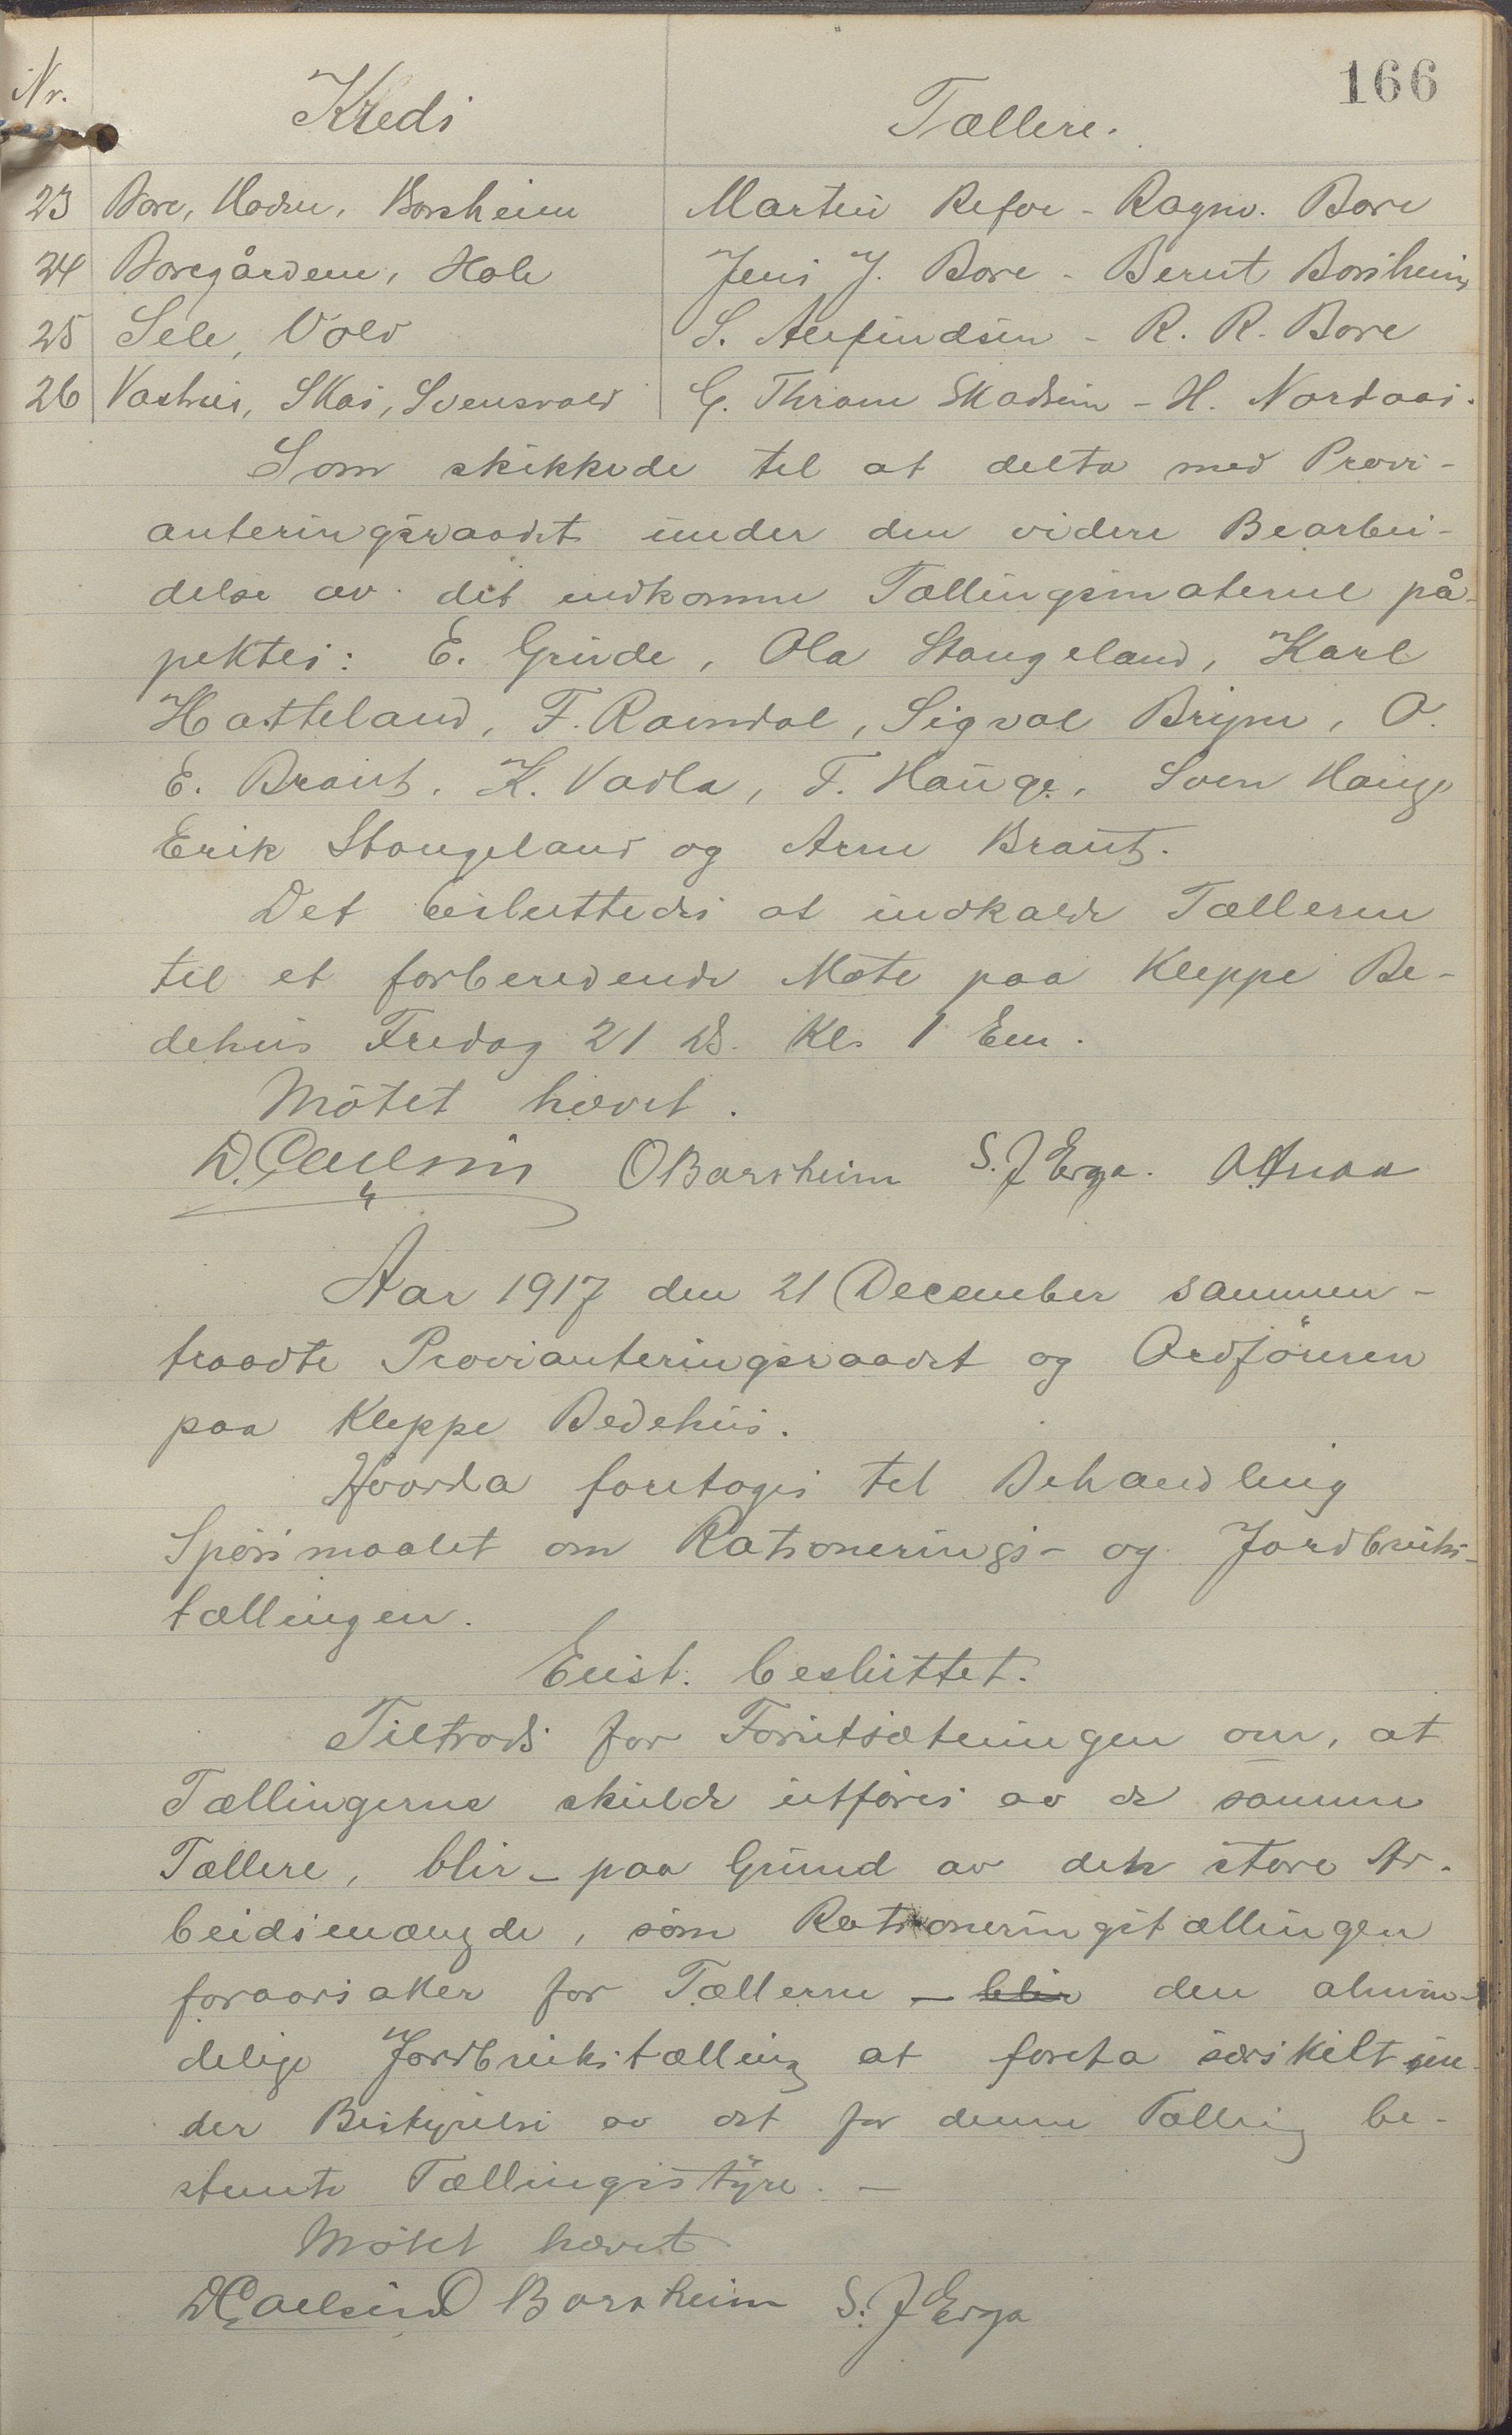 166
Nr. Kreds Tællere.
23 Bore, Hodne, Borsheim Martin Refve - Ragnv. Bore
24 Boregårdene, Hole Jens J. Bore - Bernt Borsheim
25 Sele, Vold S. Erfindsen - R. R. Bore
26 Vashus, Skas, Svensvold G. Thrane Skadsem - H. Nordaas.
Som skikkede til at delta med Provi-
anteringsraadet under den videre Bearbei-
delse av det indkomne Tællingsmateriel på-
pektes: E. Grude, Ola Stangeland, Karl
Hatteland, F. Roendal, Sigval Bryne, O.
E. Braut, K. Vadla, T. Hauge, Sven Hauge
Erik Stangeland og Arne Braut.
Det besluttedes at indkalde Tællerne
til et forberedende Møte paa Kleppe Be-
dehus Fredag 21 ds. Kl. 1 Em.
Mötet hævet.
D. Paulsen O Borsheim S. J Erga.
Aar 1917 den 21 December sammen-
traadte Provianteringsraadet og Ordföreren
paa Kleppe Bedehus.
Hvorda foretoges til Behandling
Spörsmaalet om Rationerings- og Jordbruks-
tællingen.
Enst. besluttet.
Tiltrods for Forutsætningen om, at
Tællingerne skulde utföres av de samme
Tællere, blir - paa Grund av den store Ar-
beidsmængde, som Rationeringstællingen
foraarsaker for Tællerne - blir den almin-
delige Jordbrukstælling at foreta særskilt un-
der Bestyrelse av det for denne Tælling be-
stemte Tællingsstyre. -
Mötet hævet
D Paulsen O Borsheim S. J Erga